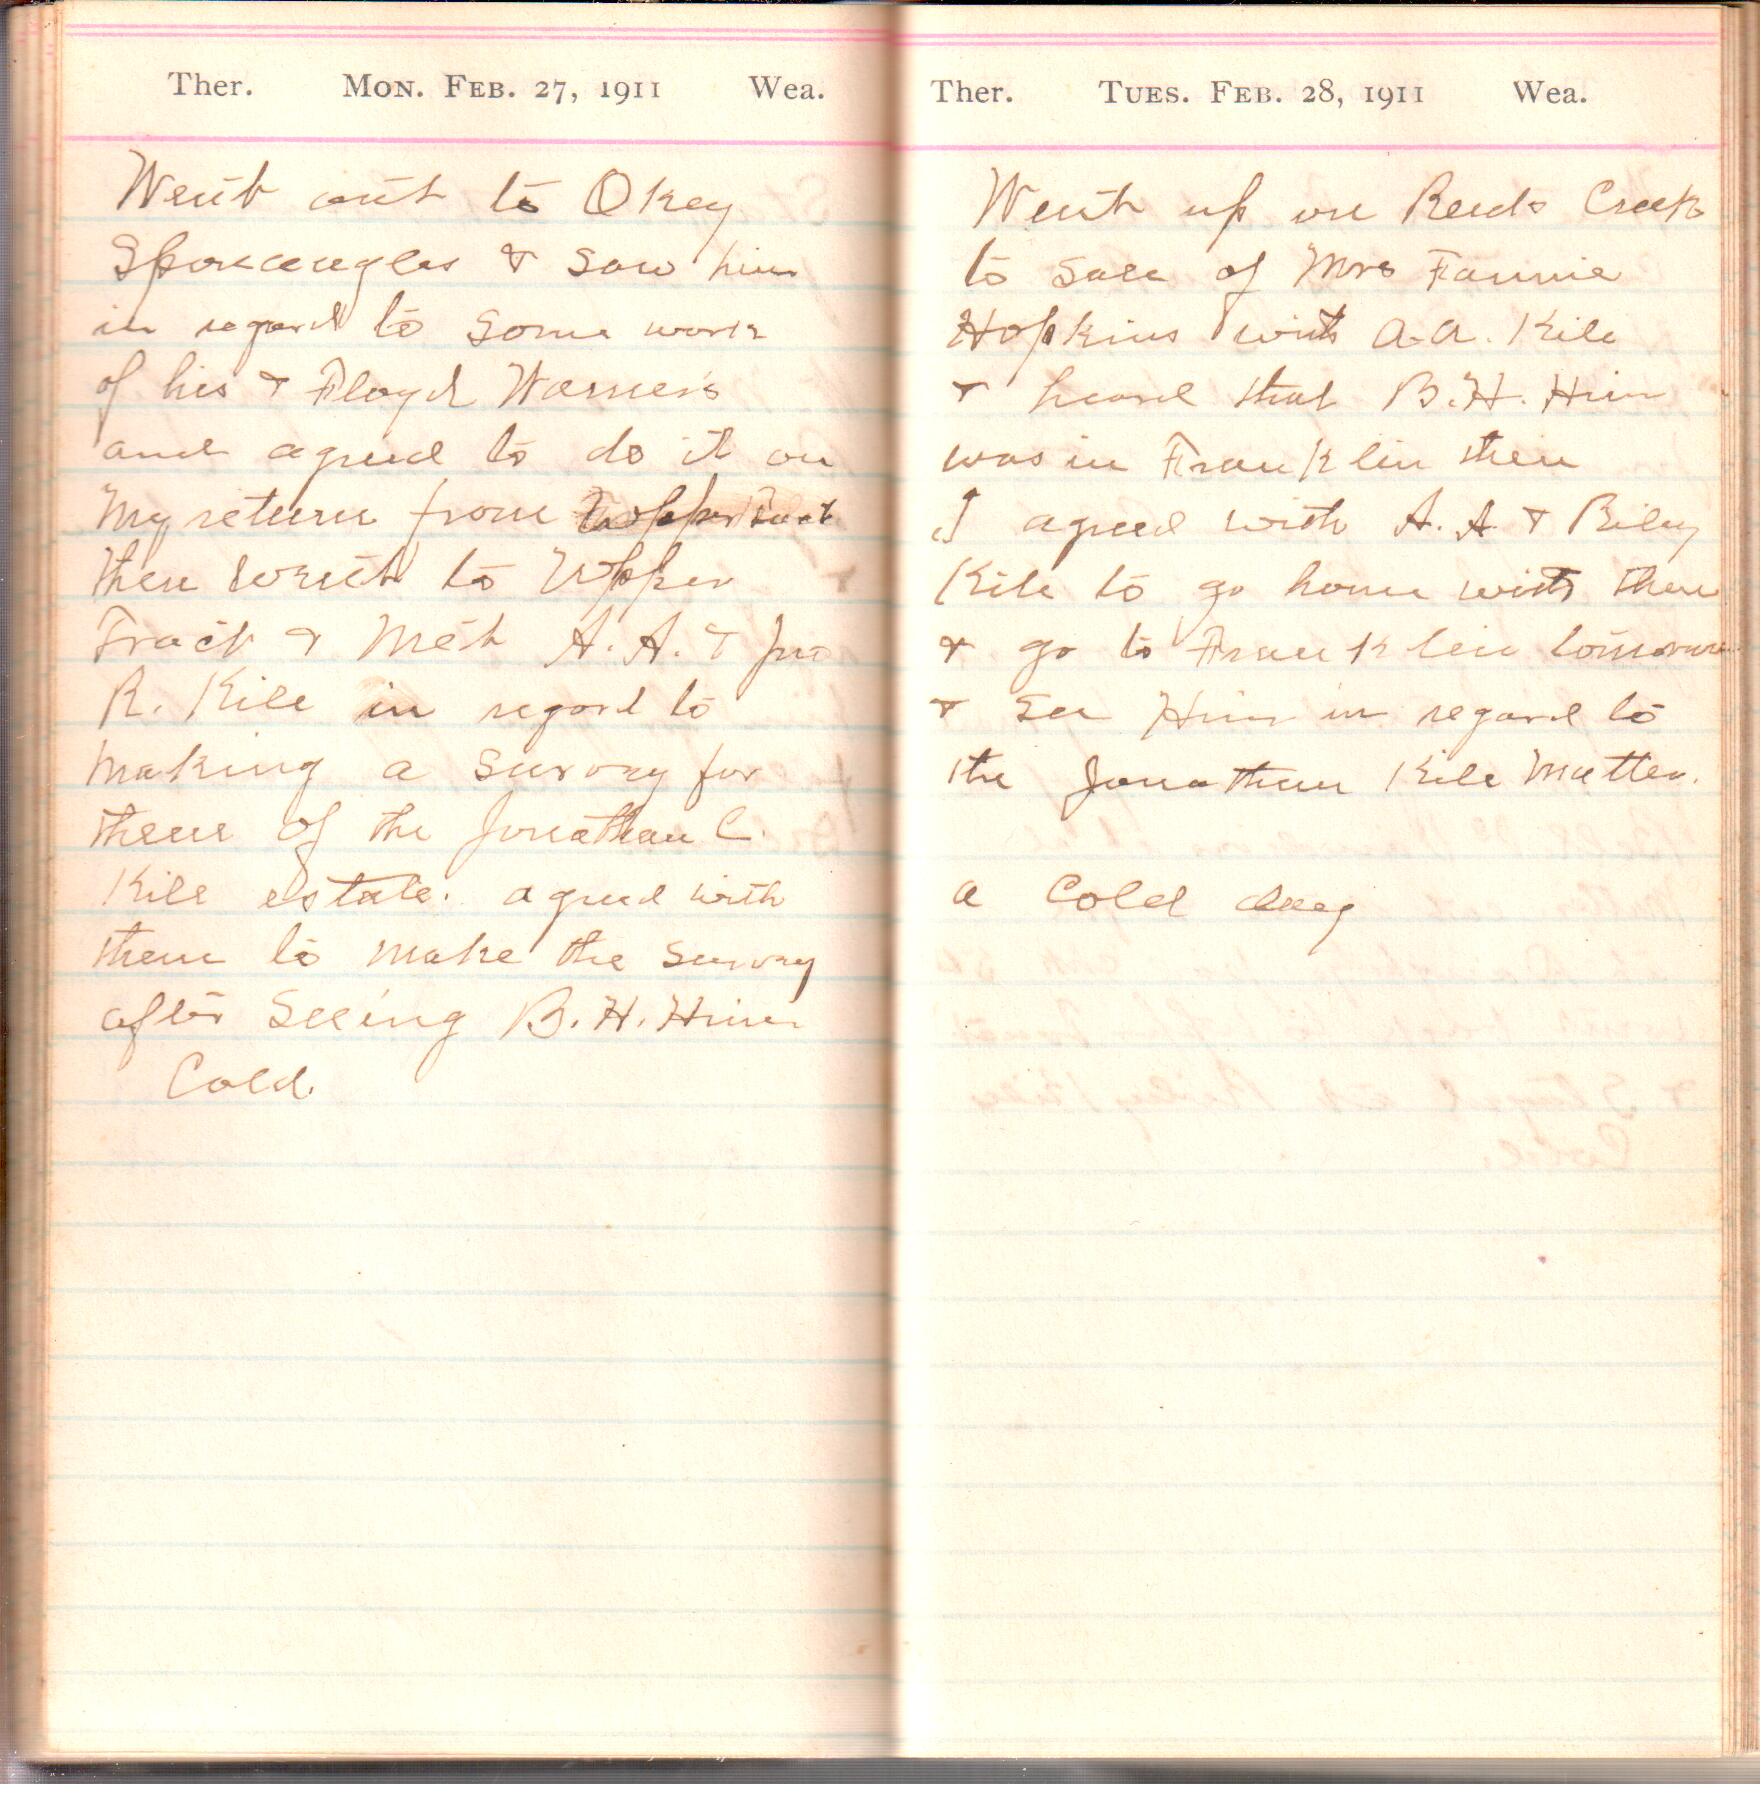 Ther. Mon. Feb. 27, 1911 Wea.
Went out to Okey
Sponaugles & saw him
in regard to some work
of his & Floyd Warners
and agreed to do it on
My return from Upper Tract
then went to Upper
Tract & Met A. A. & Jno
R. Kile in regard to
making a survey for
them of the Jonathan C.
Kile estate. agreed with
them to make the survey
after seeing B. H. Hiner
Cold.
Ther. Tues. Feb. 28, 1911 Wea.
Went up on Reeds Creek
to sale of Mrs Fannie
Hopkins with A. A. Kile
& heard that B. H. Hiner
was in Franklin then
I agreed with A. A & Riley
Kile to go home with them
& go to Franklin tomorrow
& see Hiner in regard to
the Jonathan Kile Matter.
a Cold day